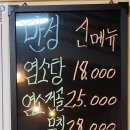 만성 신메뉴
염소탕 18,000
염소전골 25,000
무침 28,000